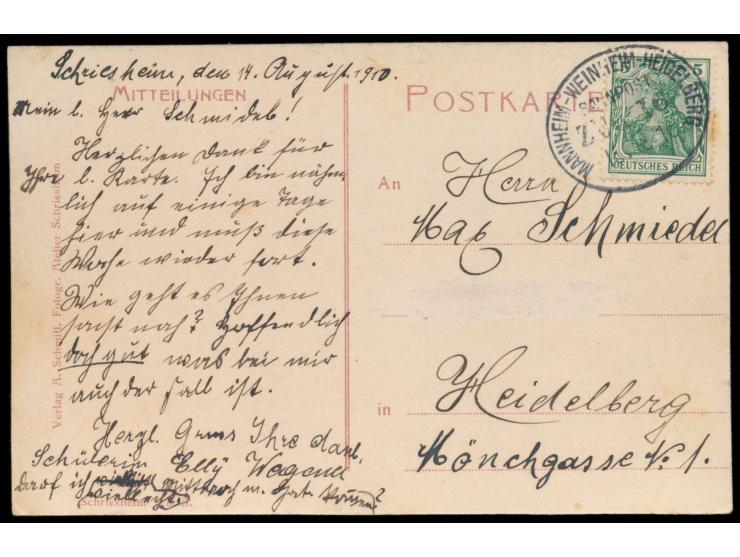 Schriesheim, den 14. August. 1910.
MITTEILUNGEN
Mein l. Herr Schmidel!
Herzlichen Dank für
Ihre l. Karte. Ich bin nähm-
lich auf einige Tage
hier und muß diese
Woche wieder fort.
Wie geht es Ihnen
? Hoffendlich
doch gut was bei mir
auch der Fall ist.
Herzl. Gruss Ihre dankb.
Schülerin Elly Wagend
Darf ich
vielleicht Mittwoch m. kommen?
Schriesheim
Verlag A. Schmitt, Fotogr. Atelier Schriesheim
POSTKARTE
MANNHEIM-WEINHEIM-HEIDELBERG
BAHNPOST
5
DEUTSCHES REICH
An Herrn
Max Schmiedel
in Heidelberg
Mönchgasse N. 1.